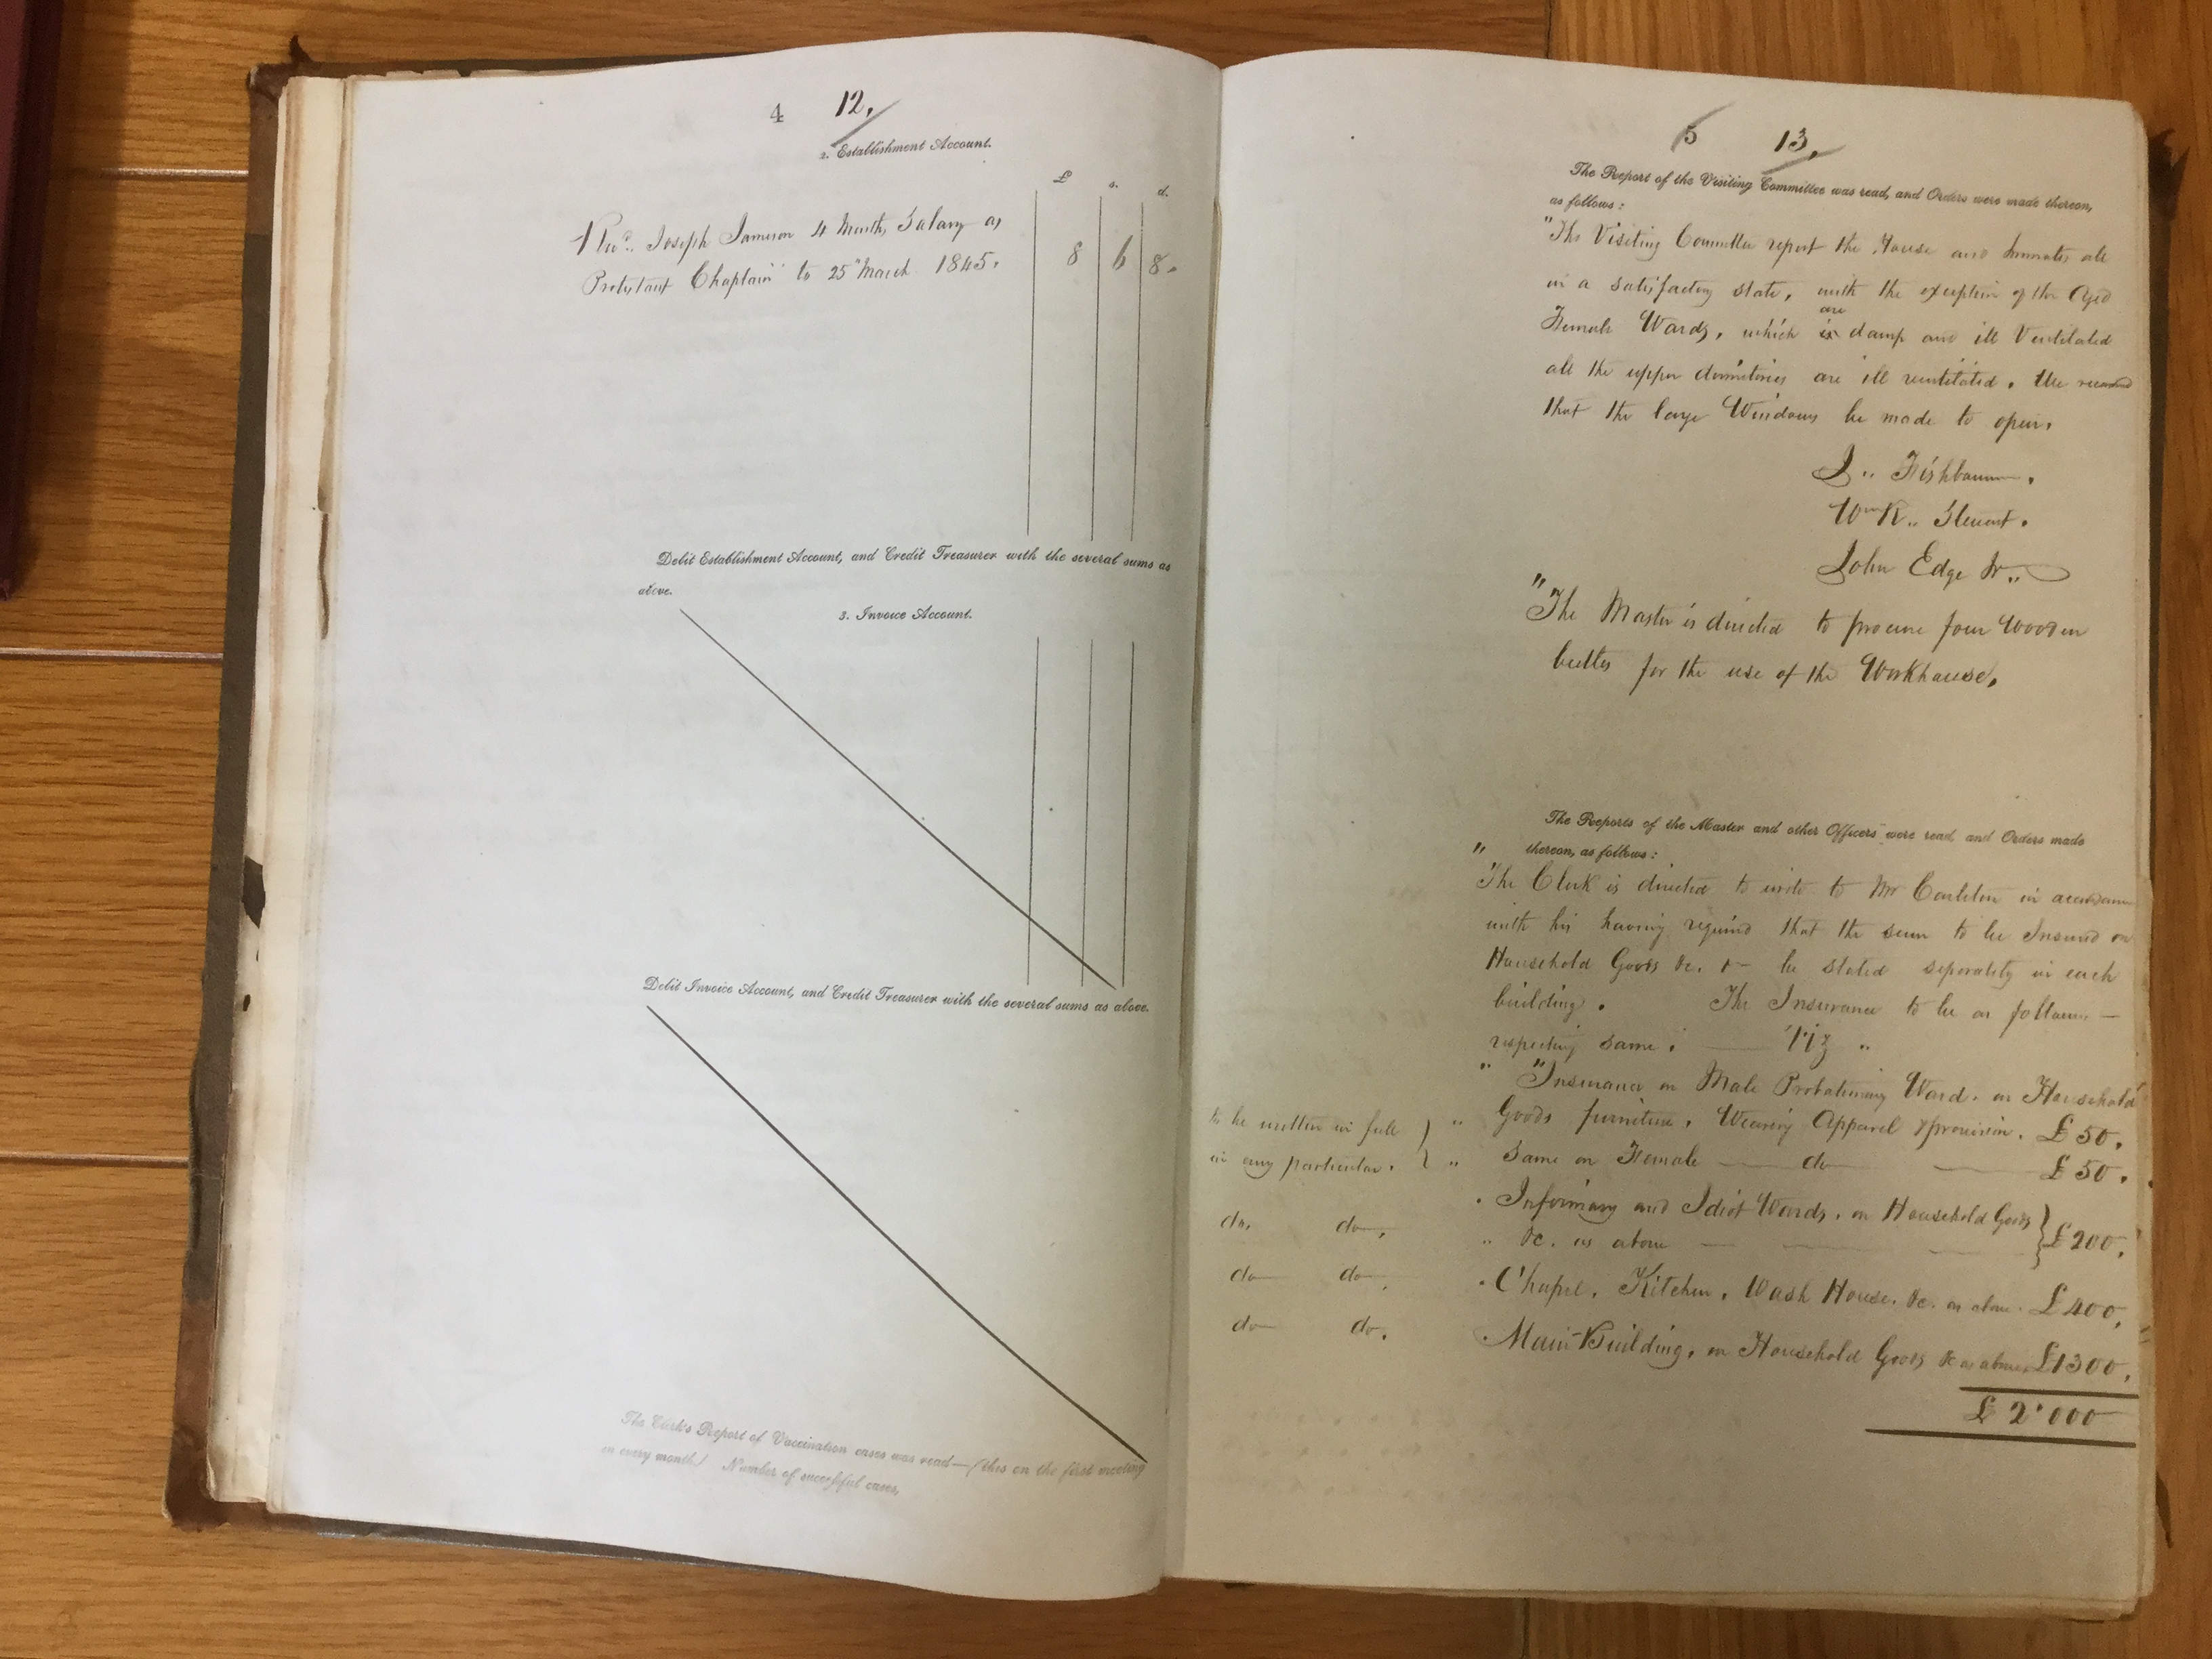 4 12.
2. Establishment Account.
£ s. d.
Revd.. Joseph Jameson 4 Months Salary as
Protestant Chaplain to 25" March 1845. 8 6 8.
Debit Establishment Account, and Credit Treasurer with the several sums as
above.
3. Invoice Account.
Debit Invoice Account, and Credit Treasurer with the several sums as above.
The Clerk's Report of Vaccination cases was read—(this on the first meeting
in every month) Number of successful cases,
5 13.
The Report of the Visiting Committee was read, and Orders were made thereon,
as follows:
"The Visiting Committee report the House and Inmates all
in a satisfactory state, with the exception of the Aged
are
Female Wards, which is damp and ill Ventilated
all the upper dormitories are ill ventilated. We recommend
that the large Windows be made to open.
J.. Fishbourne.
Wm R.. Stewart.
John Edge Jr..
"The Master is directed to procure four Wooden
for the use of the Workhouse.
The Reports of the Master and other Officers were read and Orders made
" thereon, as follows:
The Clerk is directed to write to Mr Carleton in accordance
with his having required that the sum to be Insured on
Household Goods &c. be stated separately in each
building. The Insurance to be as follows —
respecting same. — Viz "
" "Insurance on Male Probationary Ward. on Household
Goods furniture, Wearing Apparel & provision. £50.
to be written in full } "
in any particular. } " Same on Female — do — £50.
. Infirmary and Idiot Wards. on Household Goods } £200.
do. do. " &c. as above —
do do. . Chapel, Kitchen, Wash House. &c. as above. £400.
do do. . Main Building, on Household Goods &c as above. £1300.
£ 2'000